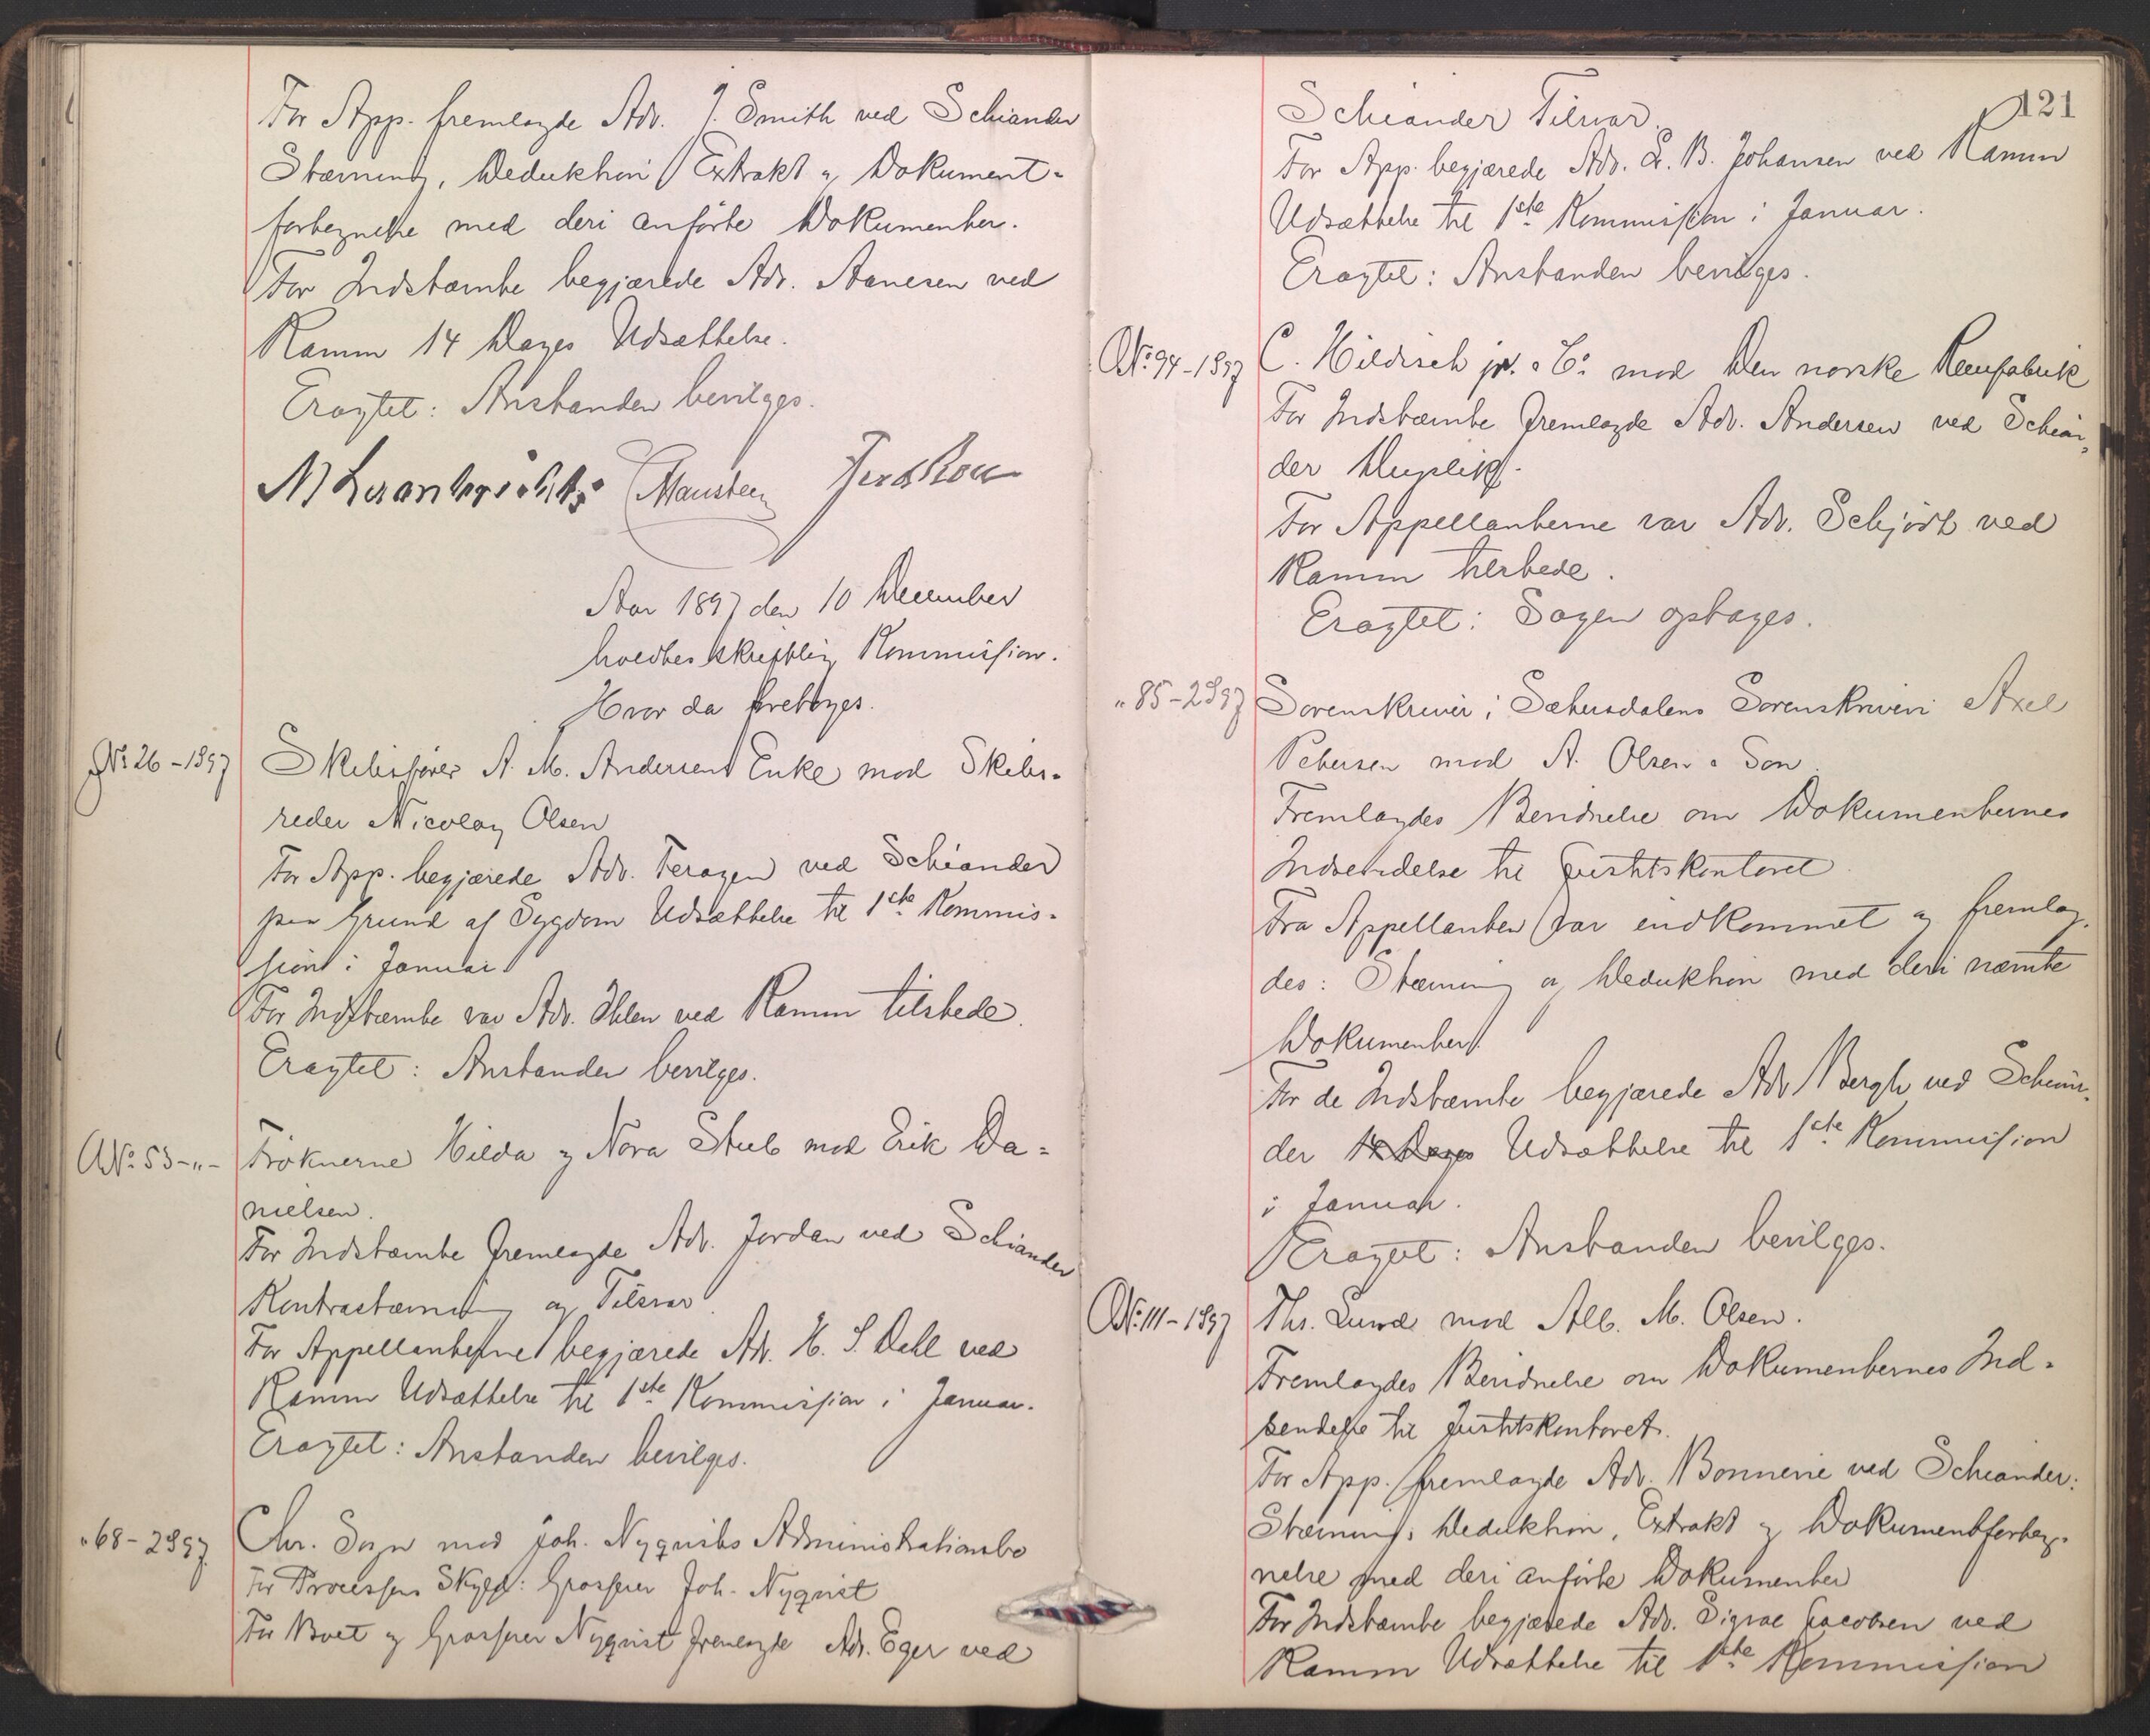 For App. fremlagde Adv. J. Smith ved Schiander
Stævning, Deduktion, Extrakt og Dokument-
fortegnelse med deri anførte Dokumenter.
For Indstævnte begjærede Adv. Aanesen ved
Ramm 14 Dages Udsættelse.
Eragtet: Anstanden bevilges.
Aar 1897 den 10 December
holdtes skriftlig Kommission.
Hvor da foretoges.
No 26-1897
Skibsfører A. M. Andersens Enke mod Skibs-
reder Nicolay Olsen
For App. begjærede Adv. Feragen ved Schiander
paa Grund af Sygdom Udsættelse til 1ste Kommis-
sion i Januar
For Indstævnte var Adv. Ihlen ved Ramm tilstede.
Eragtet: Anstanden bevilges.
No 53-"-
Frøknerne Hilda og Nora Stub mod Erik Da-
nielsen.
For Indstævnte fremlagde Adv. Jordan ved Schiander
Kontrastævning og Tilsvar.
For Appellanterne begjærede Adv. H. S. Dahl ved
Ramm Udsættelse til 1ste Kommission i Januar.
Eragtet: Anstanden bevilges.
" 68-2897
Chr. mod Joh. Nyquists Administrationsbo
for Processens Skyld: Grosserer Joh. Nyqvist
For Boet og Grosserer Nyqvist fremlagde Adv. Eger ved
121
Schiander Tilsvar.
For App. begjærede Adv. B. Johansen ved Ramm
Udsættelse til 1ste Kommission i Januar.
Eragtet: Anstanden bevilges.
No 94-1897
C. Hildisch jr. & Co mod Den norske Remfabrik
For Indstævnte fremlagde Adv. Andersen ved Schian-
der Duplik.
For Appellanterne var Adv. Schjødt ved
Ramm tilstede.
Eragtet: Sagen optages.
" 85-2897
Sorenskriver i Sætersdalens Sorenskriveri Axel
Petersen mod A. Olsen & Søn.
Fremlagdes Bevidnelse om Dokumenternes
Indsendelse til Justitskontoret
Fra Appellanten var indkommet og fremlag-
des: Stævning og Deduktion med deri nævnte
Dokumenter.
For de Indstævnte begjærede Adv. Bergh ved Schian-
der 14 Dages Udsættelse til 1ste Kommission
i Januar.
Eragtet: Anstanden bevilges.
No 111-1897
Thr. Lund mod Alb. M. Olsen.
Fremlagdes Bevidnelse om Dokumenternes Ind-
sendelse til Justitskontoret.
For App. fremlagde Adv. Bonnevie ved Schiander:
Stævning, Deduktion, Extrakt og Dokumentforteg-
nelse med deri anførte Dokumenter
For Indstævnte begjærede Adv. Jacobsen ved
Ramm Udsættelse til 1ste Kommission